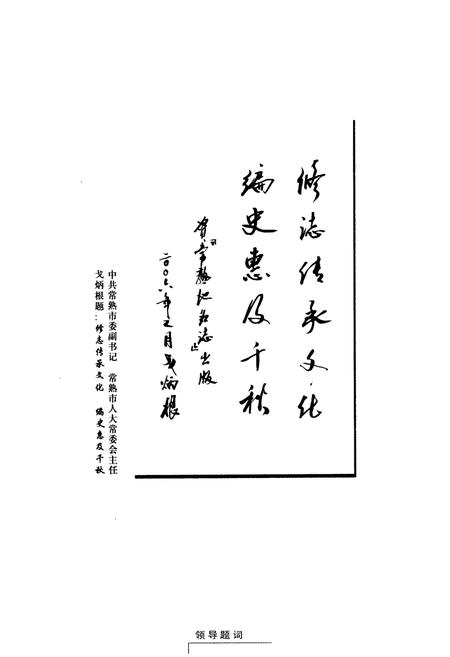 修誌传承文化
编史惠及千秋
贺《常熟地名志》出版
二〇〇六年三月戈炳根
中共常熟市委副书记 常熟市人大常委会主任
戈炳根题:修志传承文化 编史惠及千秋
领导题词